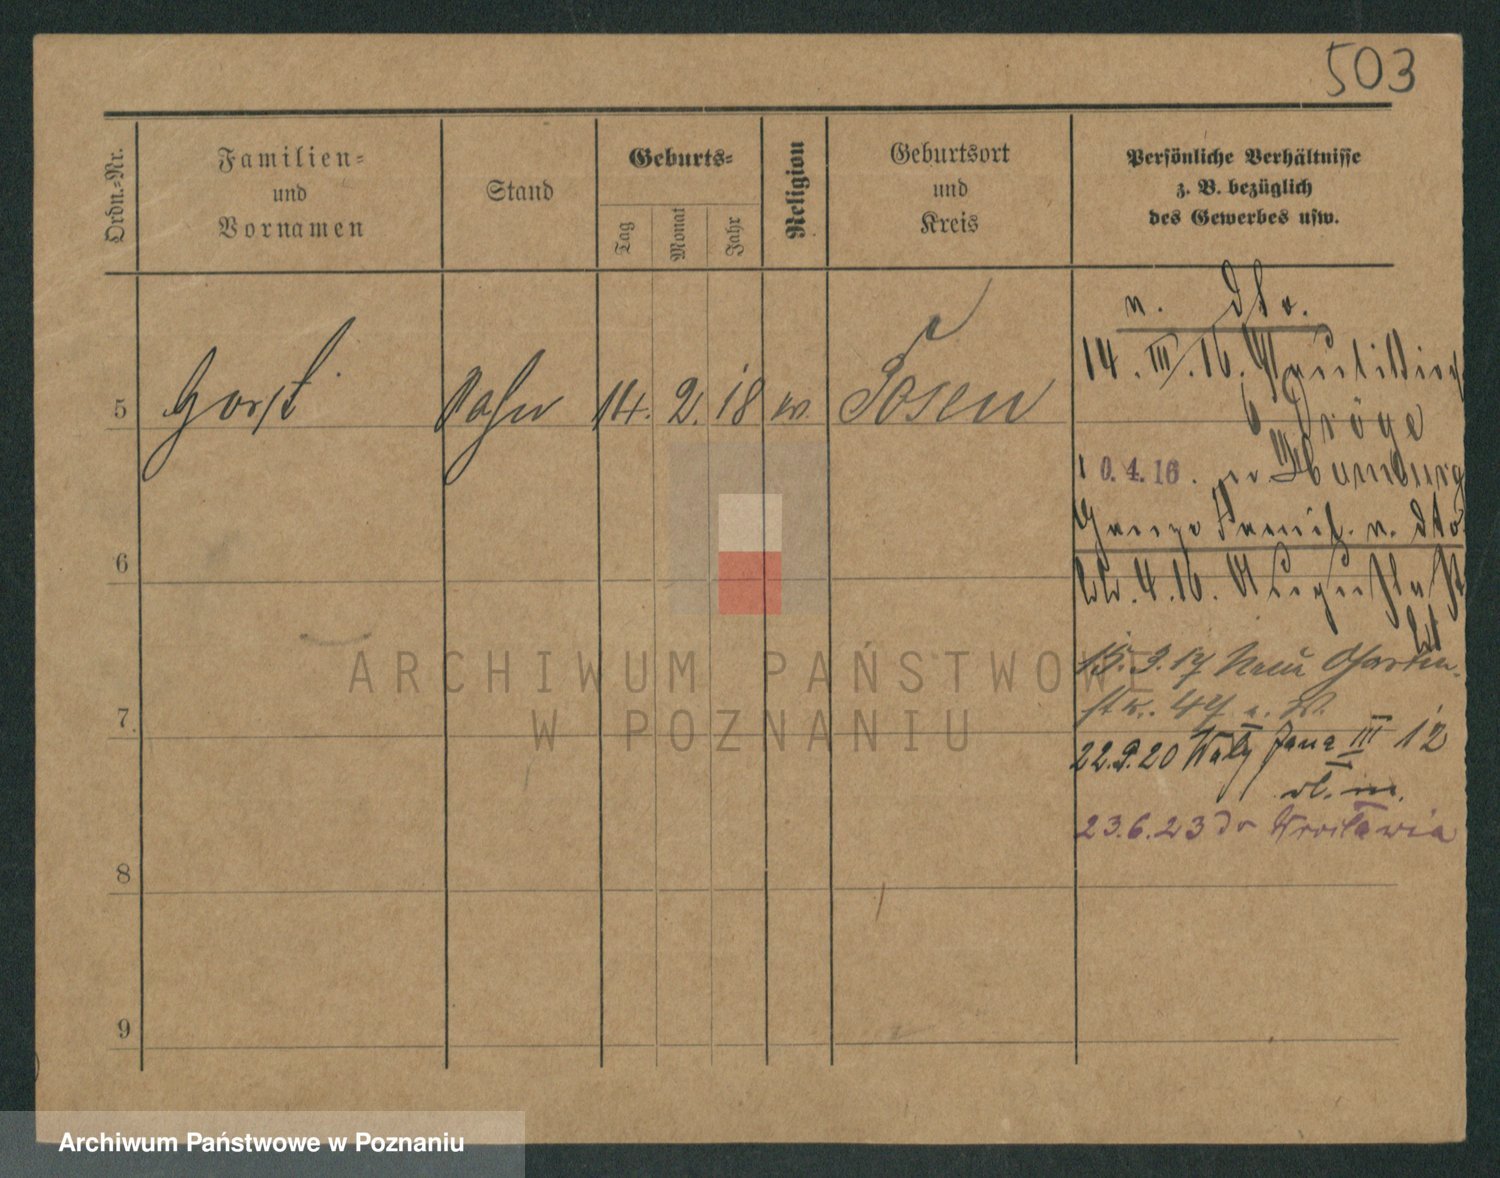 503
Ordn.-Nr.
Familien-
und
Vornamen
Stand
Geburts-
Tag
Monat
Jahr
Religion
Geburtsort
und
Kreis
Persönliche Verhältnisse
z. B. bezüglich
des Gewerbes usw.
5 Horst Sohn 14. 2. 18 Posen
n. dto.
14. III. 16.
Dröge
10.4.16. Hamburg
Ganze Famil. n. dto
6
22.4.16.
15. 9. 17 Neue Garten-
str. 47
7
22.9.20 Wały Jana III 12
23.6.23 do Wrocławia
8
9
ARCHIWUM PAŃSTWOWE
W POZNANIU
Archiwum Państwowe w Poznaniu